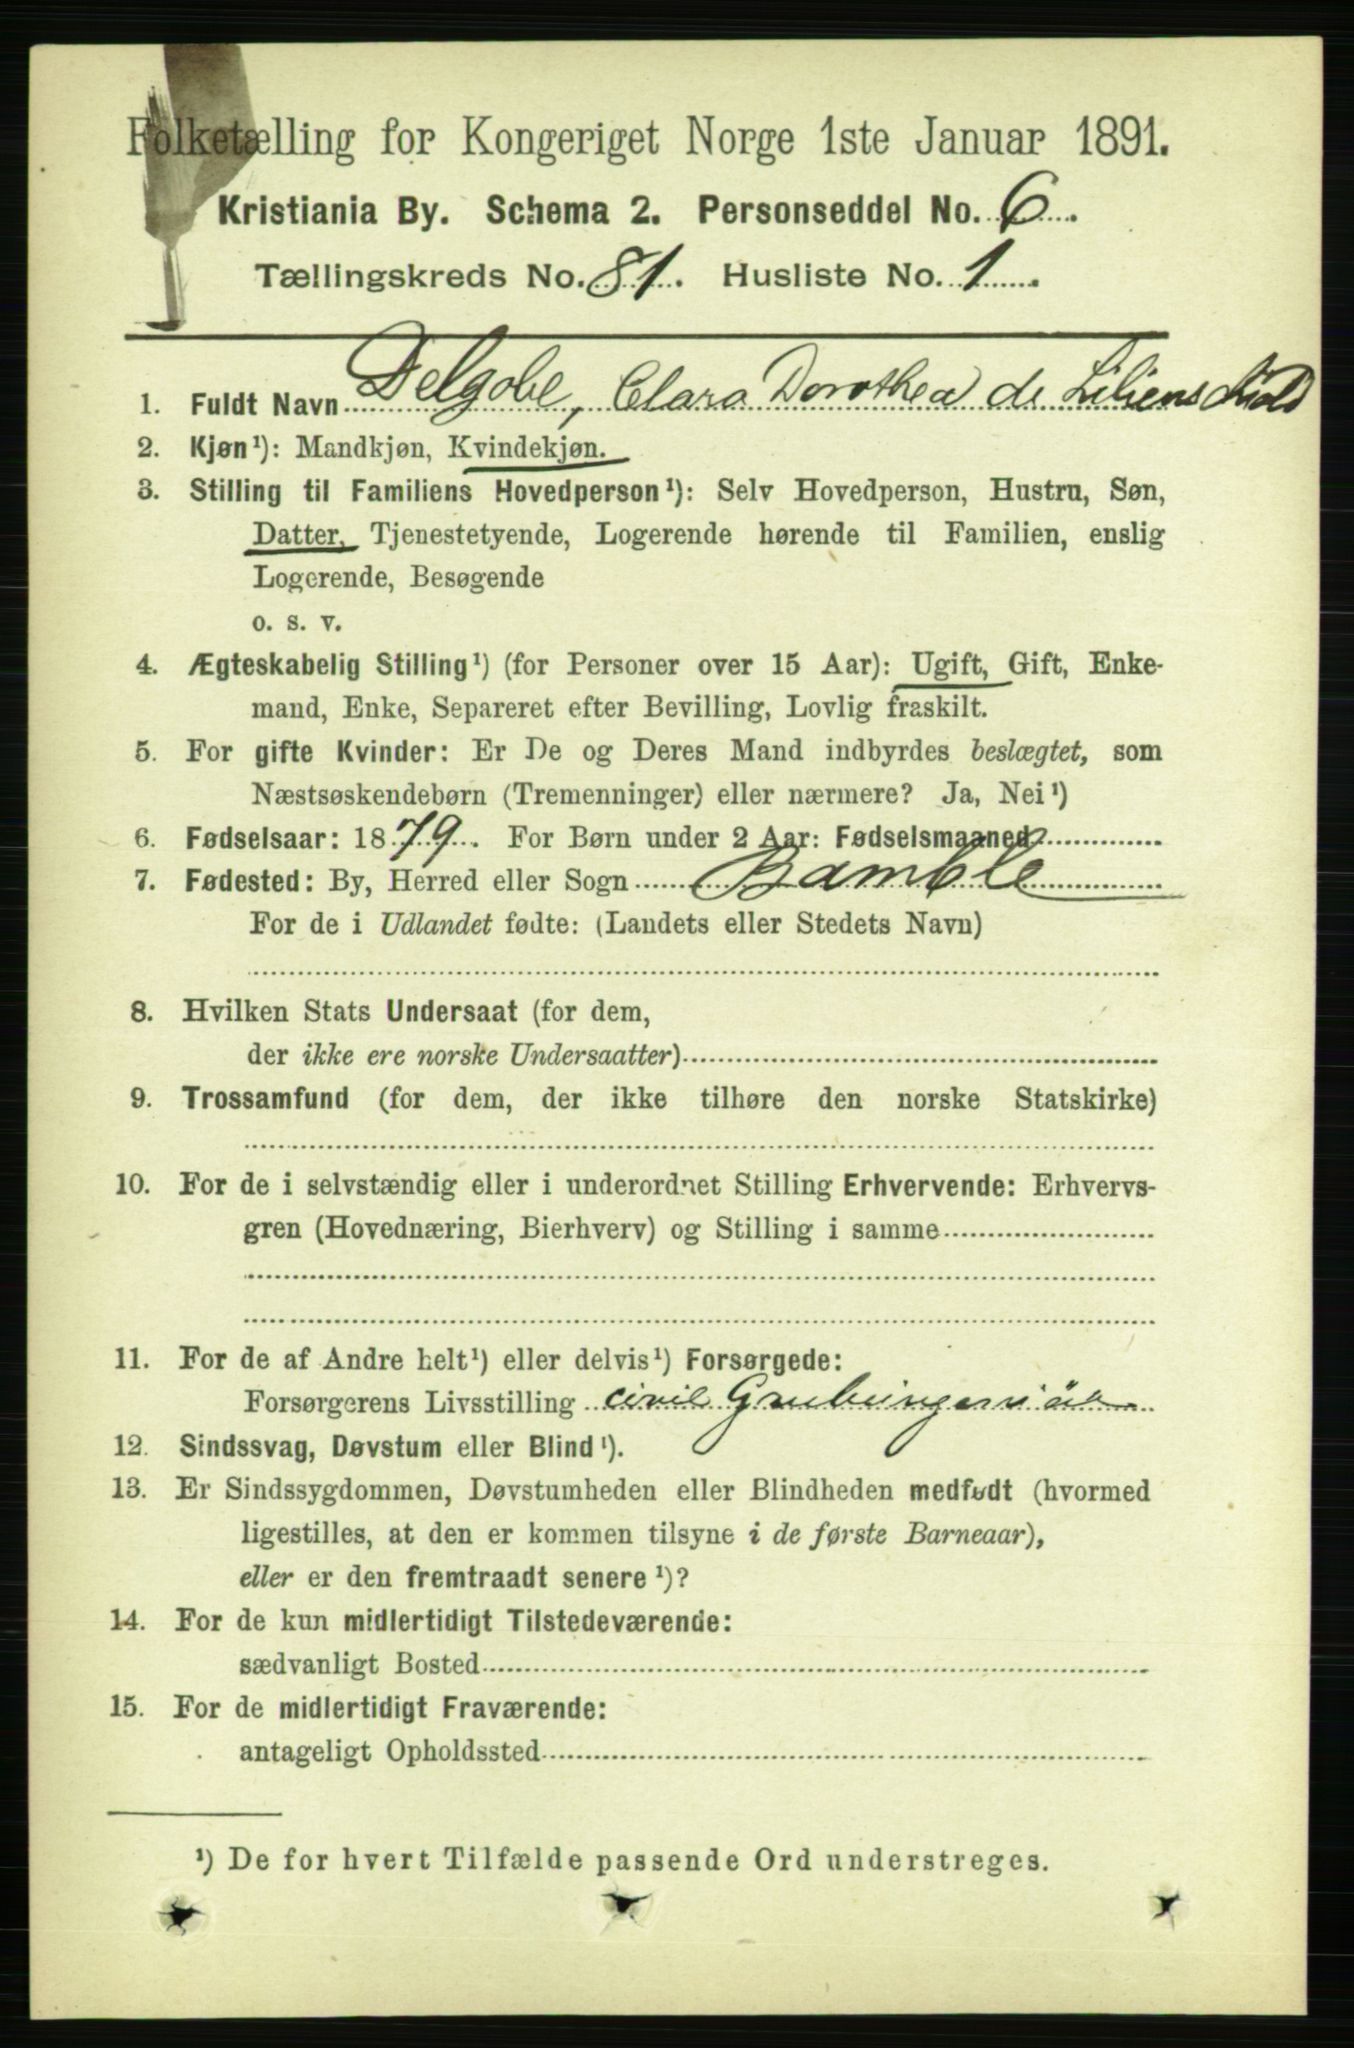 Folketælling for Kongeriget Norge 1ste Januar 1891.
Kristiania By. Schema 2. Personseddel No. 6.
Tællingskreds No. 81. Husliste No. 1.
1. Fuldt Navn Delgobe, Clara Dorothea de Lilienskiold
2. Kjøn¹): Mandkjøn, Kvindekjøn.
3. Stilling til Familiens Hovedperson¹): Selv Hovedperson, Hustru, Søn,
Datter, Tjenestetyende, Logerende hørende til Familien, enslig
Logerende, Besøgende
o. s. v.
4. Ægteskabelig Stilling¹) (for Personer over 15 Aar): Ugift, Gift, Enke-
mand, Enke, Separeret efter Bevilling, Lovlig fraskilt.
5. For gifte Kvinder: Er De og Deres Mand indbyrdes beslægtet, som
Næstsøskendebørn (Tremenninger) eller nærmere? Ja, Nei¹)
6. Fødselsaar: 1879. For Børn under 2 Aar: Fødselsmaaned
7. Fødested: By, Herred eller Sogn Bamble
For de i Udlandet fødte: (Landets eller Stedets Navn)
8. Hvilken Stats Undersaat (for dem,
der ikke ere norske Undersaatter)
9. Trossamfund (for dem, der ikke tilhøre den norske Statskirke)
10. For de i selvstændig eller i underordnet Stilling Erhvervende: Erhvervs-
gren (Hovednæring, Bierhverv) og Stilling i samme
11. For de af Andre helt¹) eller delvis¹) Forsørgede:
Forsørgerens Livsstilling civil Grubeingeniör
12. Sindssvag, Døvstum eller Blind¹).
13. Er Sindssygdommen, Døvstumheden eller Blindheden medfødt (hvormed
ligestilles, at den er kommen tilsyne i de første Barneaar),
eller er den fremtraadt senere¹)?
14. For de kun midlertidigt Tilstedeværende:
sædvanligt Bosted
15. For de midlertidigt Fraværende:
antageligt Opholdssted
¹) De for hvert Tilfælde passende Ord understreges.